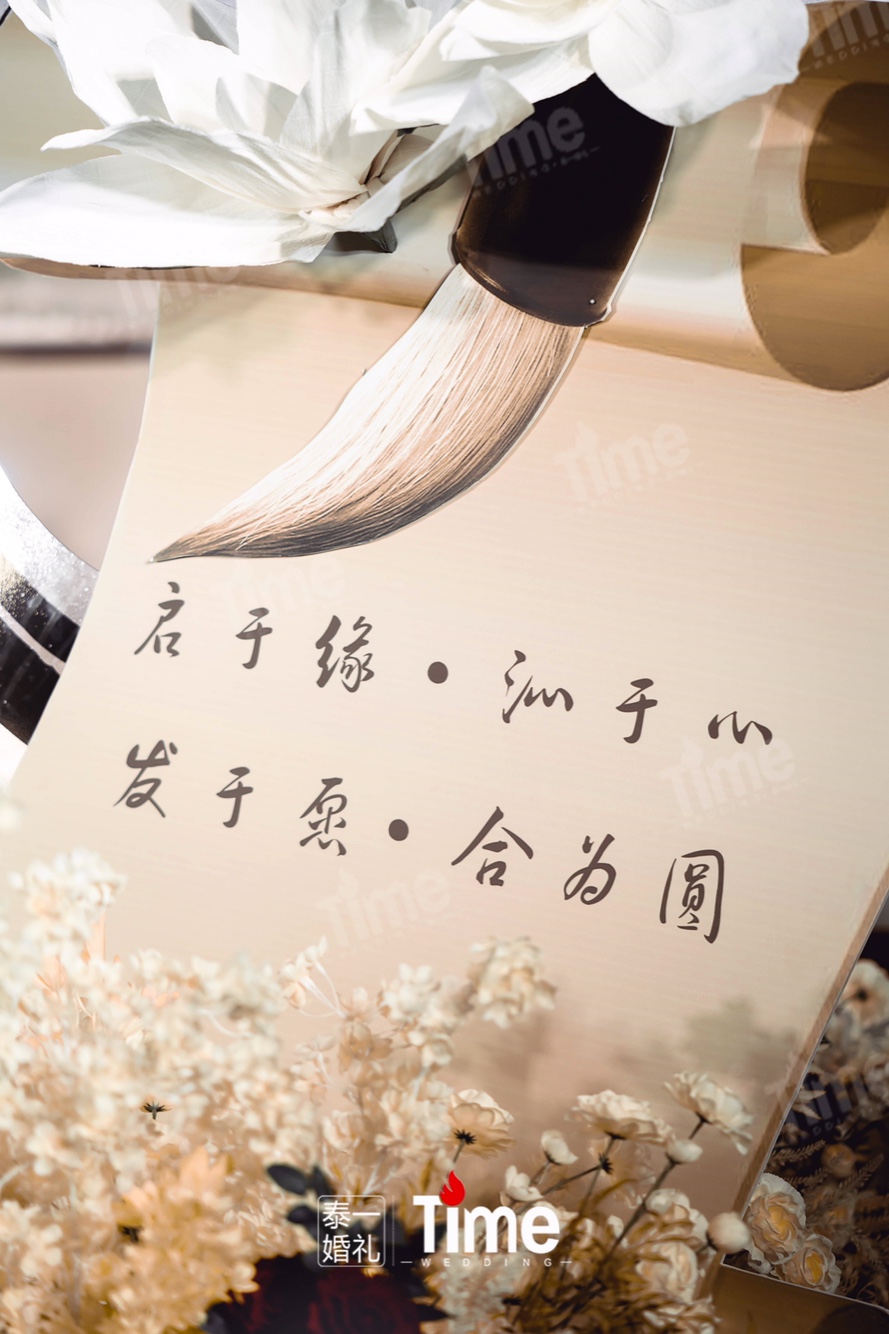 启于缘·沁于心
发于愿·合为圆
泰一婚礼
Time
WEDDING